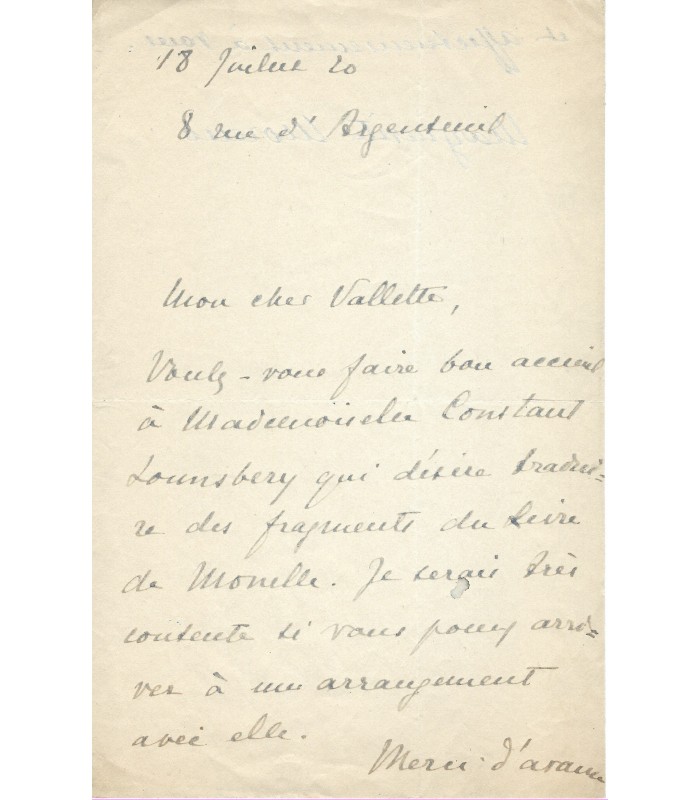 18 Juillet 20
8 rue d'Argenteuil
Mon cher Vallette,
Voulez-vous faire bon accueil
à Mademoiselle Constant
Lounsbery qui désire tradui-
re des fragments du Livre
de Monelle. Je serais très
contente si vous pouvez arri-
ver à un arrangement
avec elle.
Merci d'avance
et affectueusement à vous